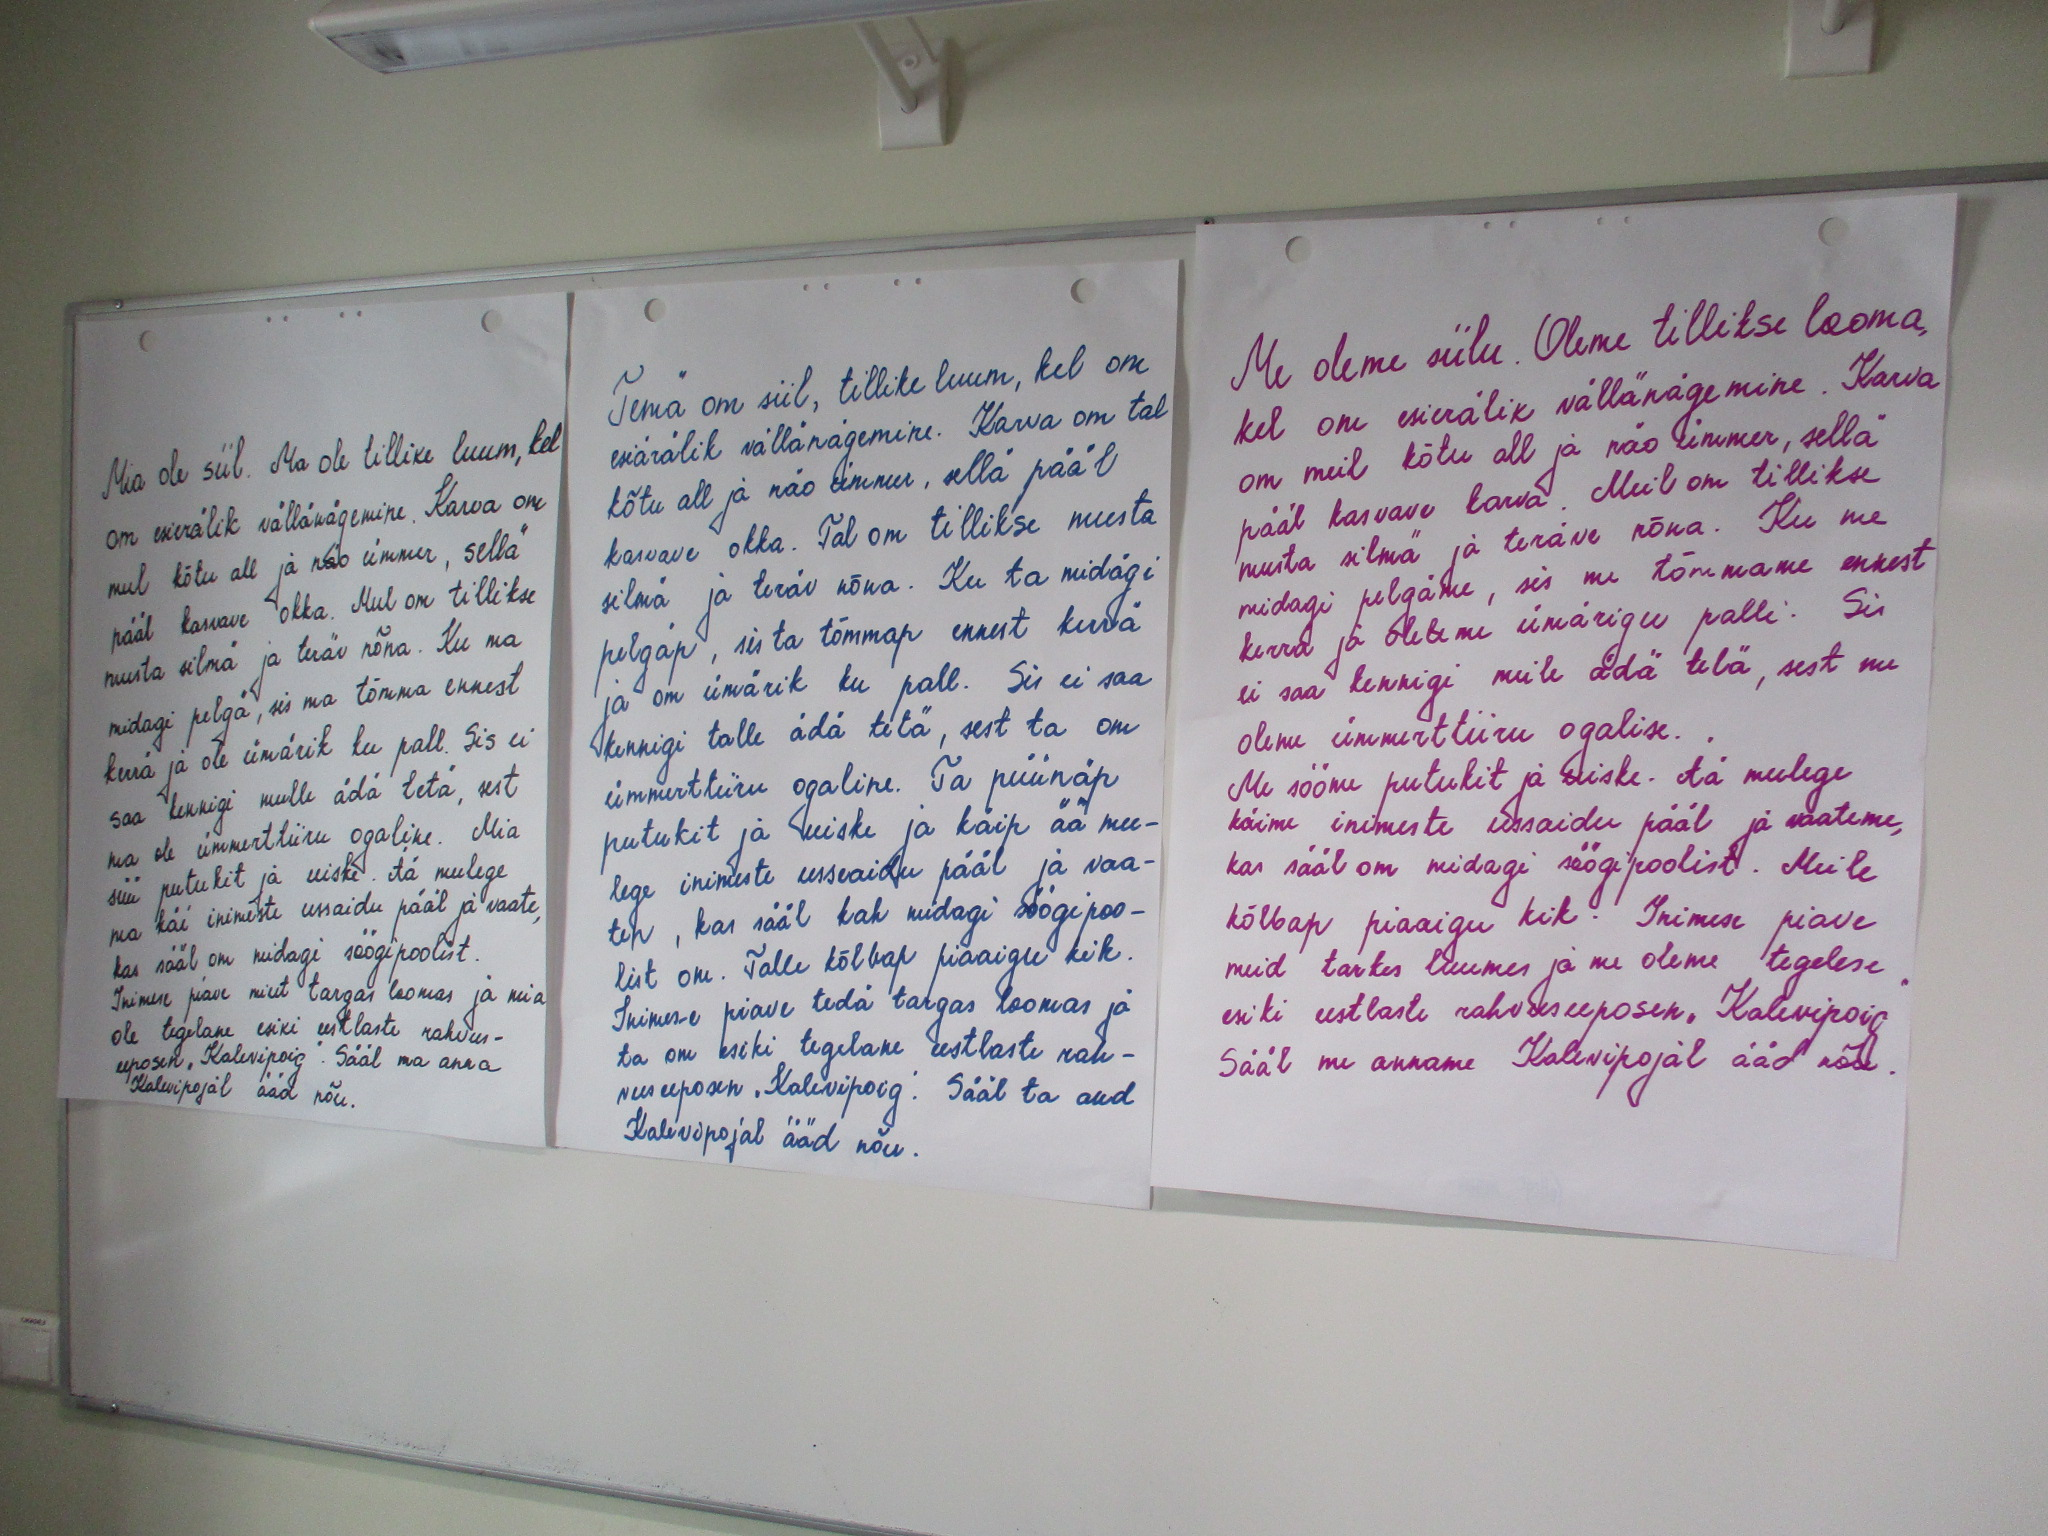 Mia ole siil. Ma ole tillike luum, kel
om esierälik vällänägemine. Karva om
mul kõtu all ja näo ümmer, sellä
pääl kasvave okka. Mul om tillikse
musta silmä ja teräv nõna. Ku ma
midagi pelgä, sis ma tõmma ennest
kerrä ja ole ümärik ku pall. Sis ei
saa kennigi mulle ädä tetä, sest
ma ole ümmerttiiru ogaline. Mia
süü putukit ja uiske. Ää meelege
ma käi inimeste ussaidu pääl ja vaate,
kas sääl om midagi söögipoolist.
Inimese piave miut targas loomas ja mia
ole tegelane esiki eestlaste rahvus-
eeposen „Kalevipoig". Sääl ma anna
Kalevipojal ääd nõu.
Temä om siil, tillike luum, kel om
esiärälik vällänägemine. Karva om tal
kõtu all ja näo ümmer, sellä pääl
kasvave okka. Tal om tillikse musta
silmä ja teräv nõna. Ku ta midägi
pelgäp, sis ta tõmmap ennest kerrä
ja om ümärik ku pall. Sis ei saa
kennigi talle ädä tetä, sest ta om
ümmerttiiru ogaline. Ta püünäp
putukit ja uiske ja käip ää mee-
lege inimeste ussaidu pääl ja vaa-
tep, kas sääl kah midagi söögipoo-
list om. Talle kõlbap piaaigu kik.
Inimese piave tedä targas loomas ja
ta om esiki tegelane eestlaste rah-
vuseeposen „Kalevipoig". Sääl ta and
Kalevipojal ääd nõu.
Me oleme siilu. Oleme tillikse looma,
kel om esierälik vällänägemine. Karva
om meil kõtu all ja näo ümmer, sellä
pääl kasvave karva. Meil om tillikse
musta silmä ja teräve nõna. Ku me
midagi pelgäme, sis me tõmmame ennest
kerrä ja oleme ümärigu palli. Sis
ei saa kennigi meile ädä tetä, sest me
oleme ümmerttiiru ogalise.
Me sööme putukit ja uiske. Ää meelege
käime inimeste ussaidu pääl ja vaateme,
kas sääl om midagi söögipoolist. Meile
kõlbap piaaigu kik. Inimese piave
meid tarkes luumes ja me oleme tegelese
esiki eestlaste rahvuseeposen „Kalevipoig"
Sääl me anname Kalevipojal ääd nõu.